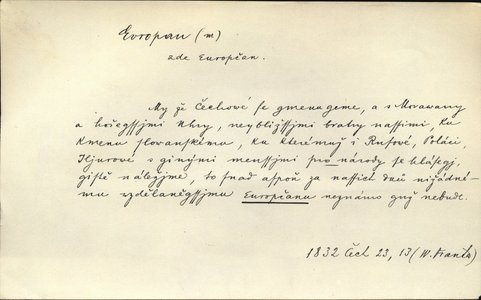 Evropan (m)
zde Europčan.
My že Čechové se gmenugeme, a s Morawany
a hořegssjmi Uhry, neybližssjmi bratry nassimi, ku
kmenu slovanskému, ku kterémuž i Rusové, Poláci,
Ilyurové s ginými menssjmi pro národy se hlásegj,
gistě náležjme, to snad aspoň za nassich dnů nižádné-
mu vzdělaněgssjmu Europčanu neznámo gný nebude.
1832 Čech 23, 13 (W. Franta)